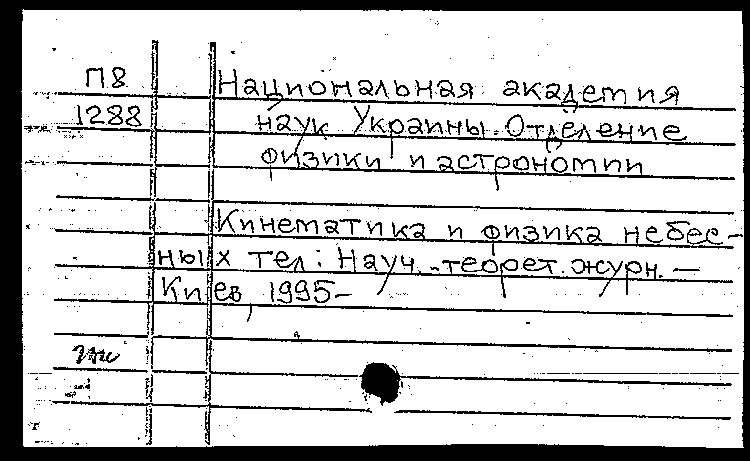 П8
1288
Национальная академия
наук Украины. Отделение
физики и астрономии
Кинематика и физика небес-
ных тел: Науч.-теорет. журн. —
Киев, 1995-